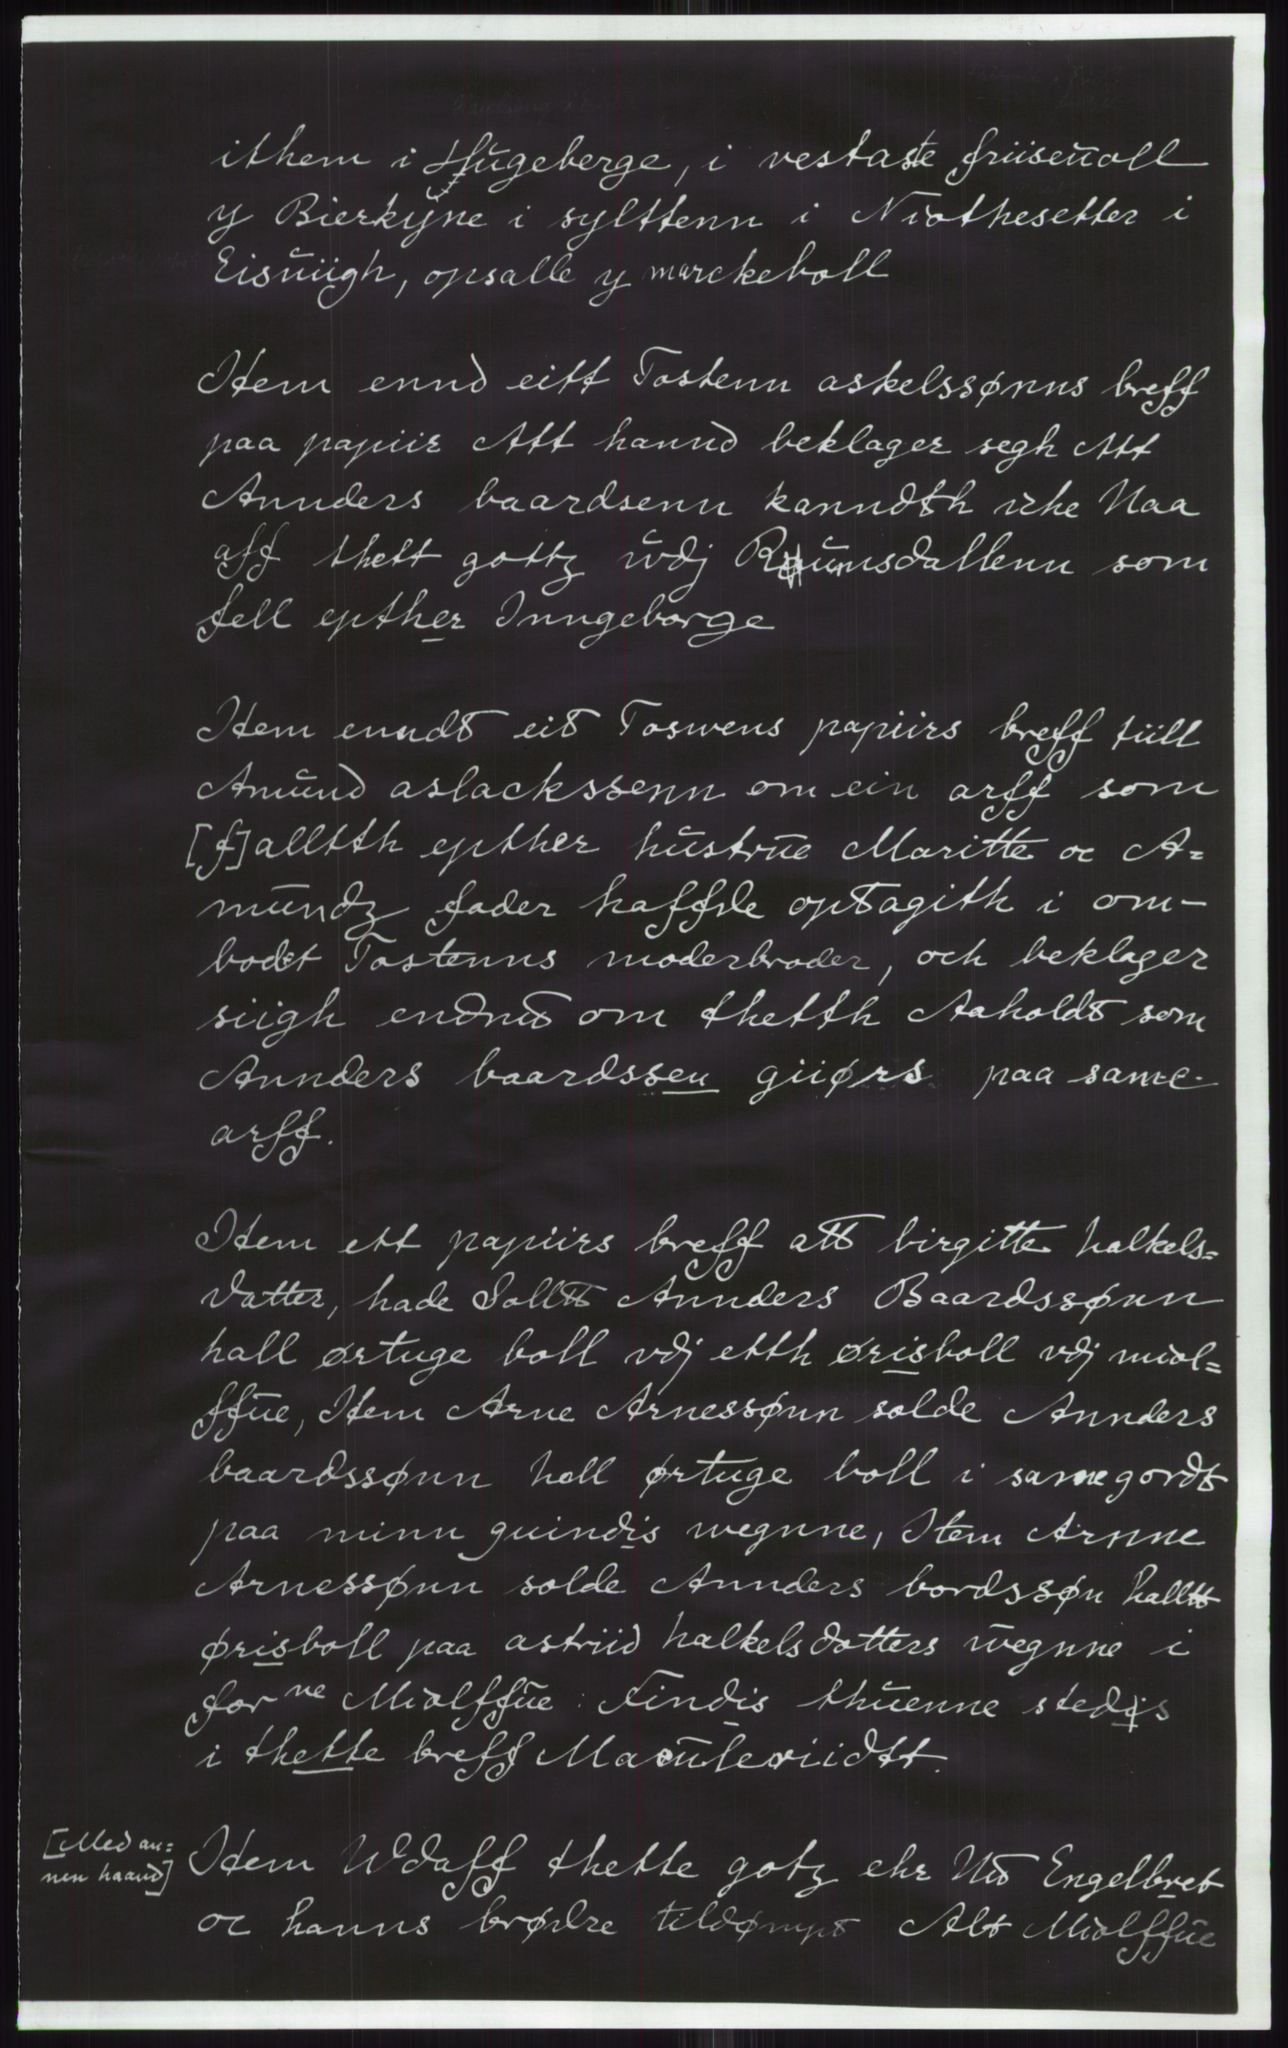 ithem i Hŭgeberge, i vestaste friiseŭoll
y Bierkÿne i sylttenn i Niothesetter i
Eisŭiigh, opsalle y marckeboll
Item ennd eitt Tostenn askelssønns breff
paa papiir Att hannd beklager segh Att
Annders baardsenn kanndth iche Naa
aff thett gottz ŭdj Rŭmsdallenn som
fell epther Inngeborge
Item enndt eit Toswens papiirs breff tiill
Amŭnd aslackssenn om ein arff som
[f]alltth epther hŭstrŭe Maritte oc A=
mŭndz fader haffde optagith i om-
bodet Tostenns moderbroder, och beklager
siigh endnd om thetth Aaholdt som
Annders baardssen giiørs paa same
arff.
Item ett papiirs breff att birgitte halkels=
datter, hade Solltt Annders Baardssønn
hall ørtuge boll vdj etth ørisboll vdj miol=
ffŭe, Item Arne Arnessønn solde Annders
baardssønn hall ørtuge boll i same gordt
paa minn quindis wegnne, Item Arnne
Arnessønn solde Annders bordssøn halltt
ørisboll paa astriid halkelsdotters wegnne i
for ne Miolffŭe: Findis thŭenne stedis
i thette breff Macŭleriidtt.
[Med an=
nen haand]
Item Wdaff thette gotz ehr Nŭ Engelbret
oc hanns brødre tildømpt Alt Miolffŭe